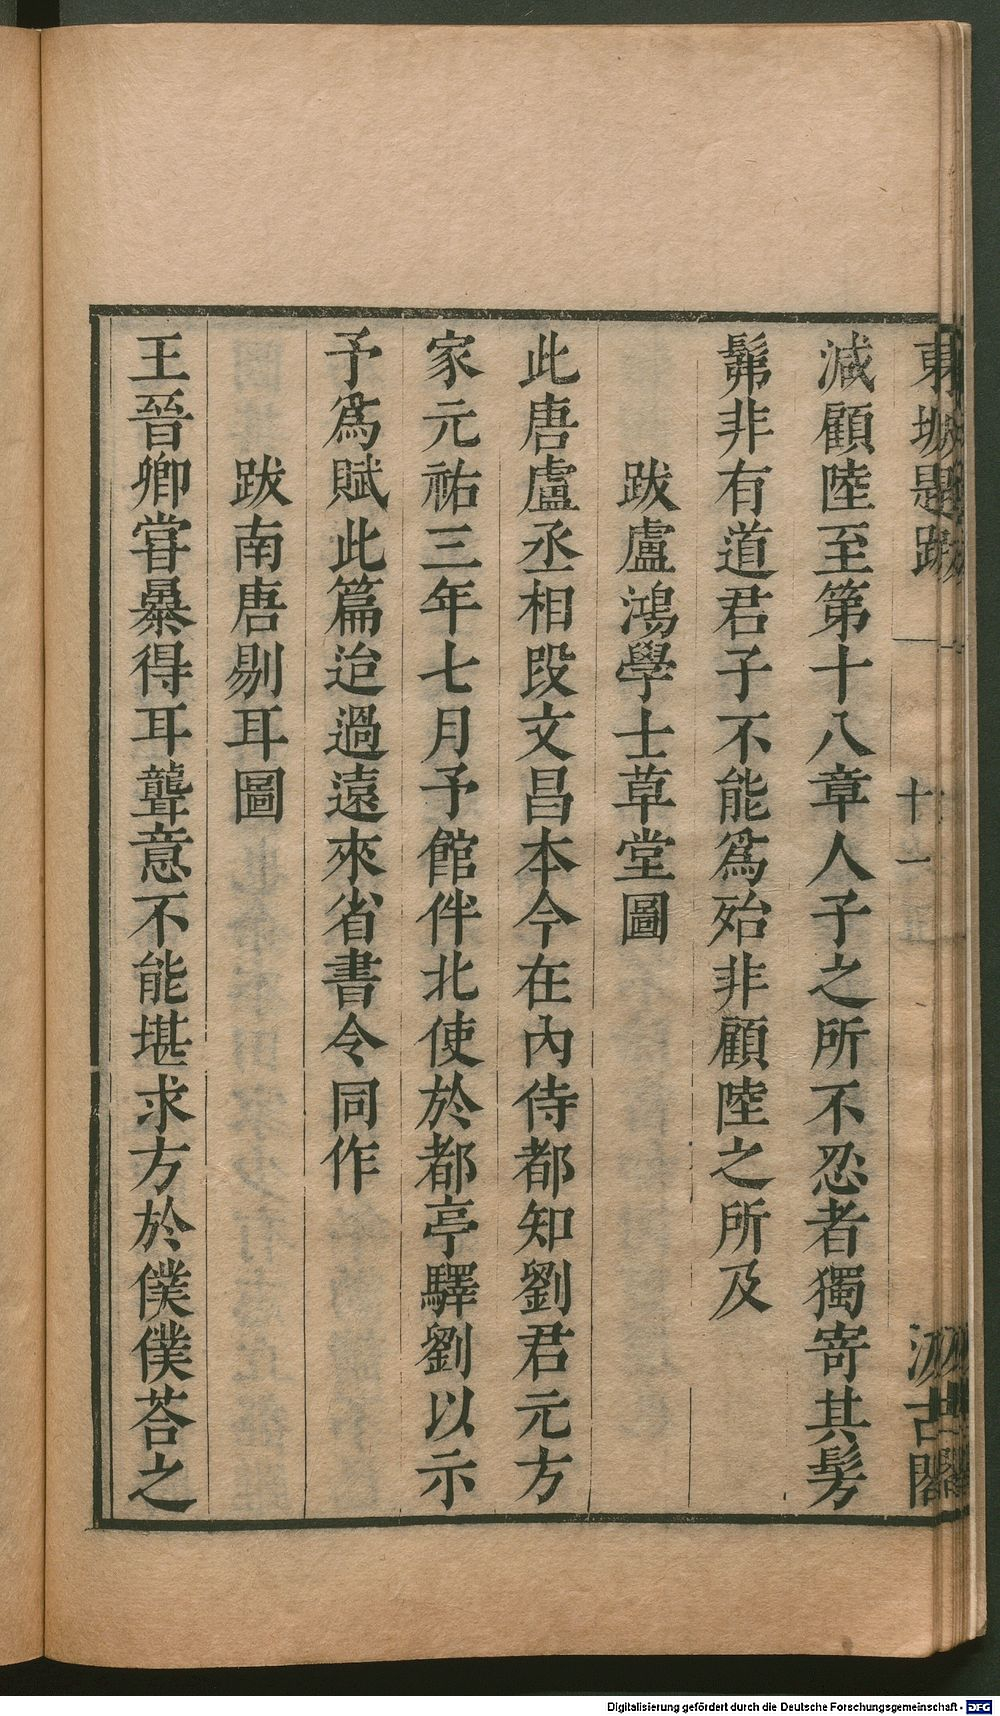 東坡題跋 十一 汲古閣
減顧陸至第十八章人子之所不忍者獨寄其髣
髴非有道君子不能爲殆非顧陸之所及
跋盧鴻學士草堂圖
此唐盧丞相段文昌本今在內侍都知劉君元方
家元祐三年七月予館伴北使於都亭驛劉以示
予爲賦此篇迨過遠來省書令同作
跋南唐剔耳圖
王晉卿嘗暴得耳聾意不能堪求方於僕僕荅之
Digitalisierung gefördert durch die Deutsche Forschungsgemeinschaft - DFG